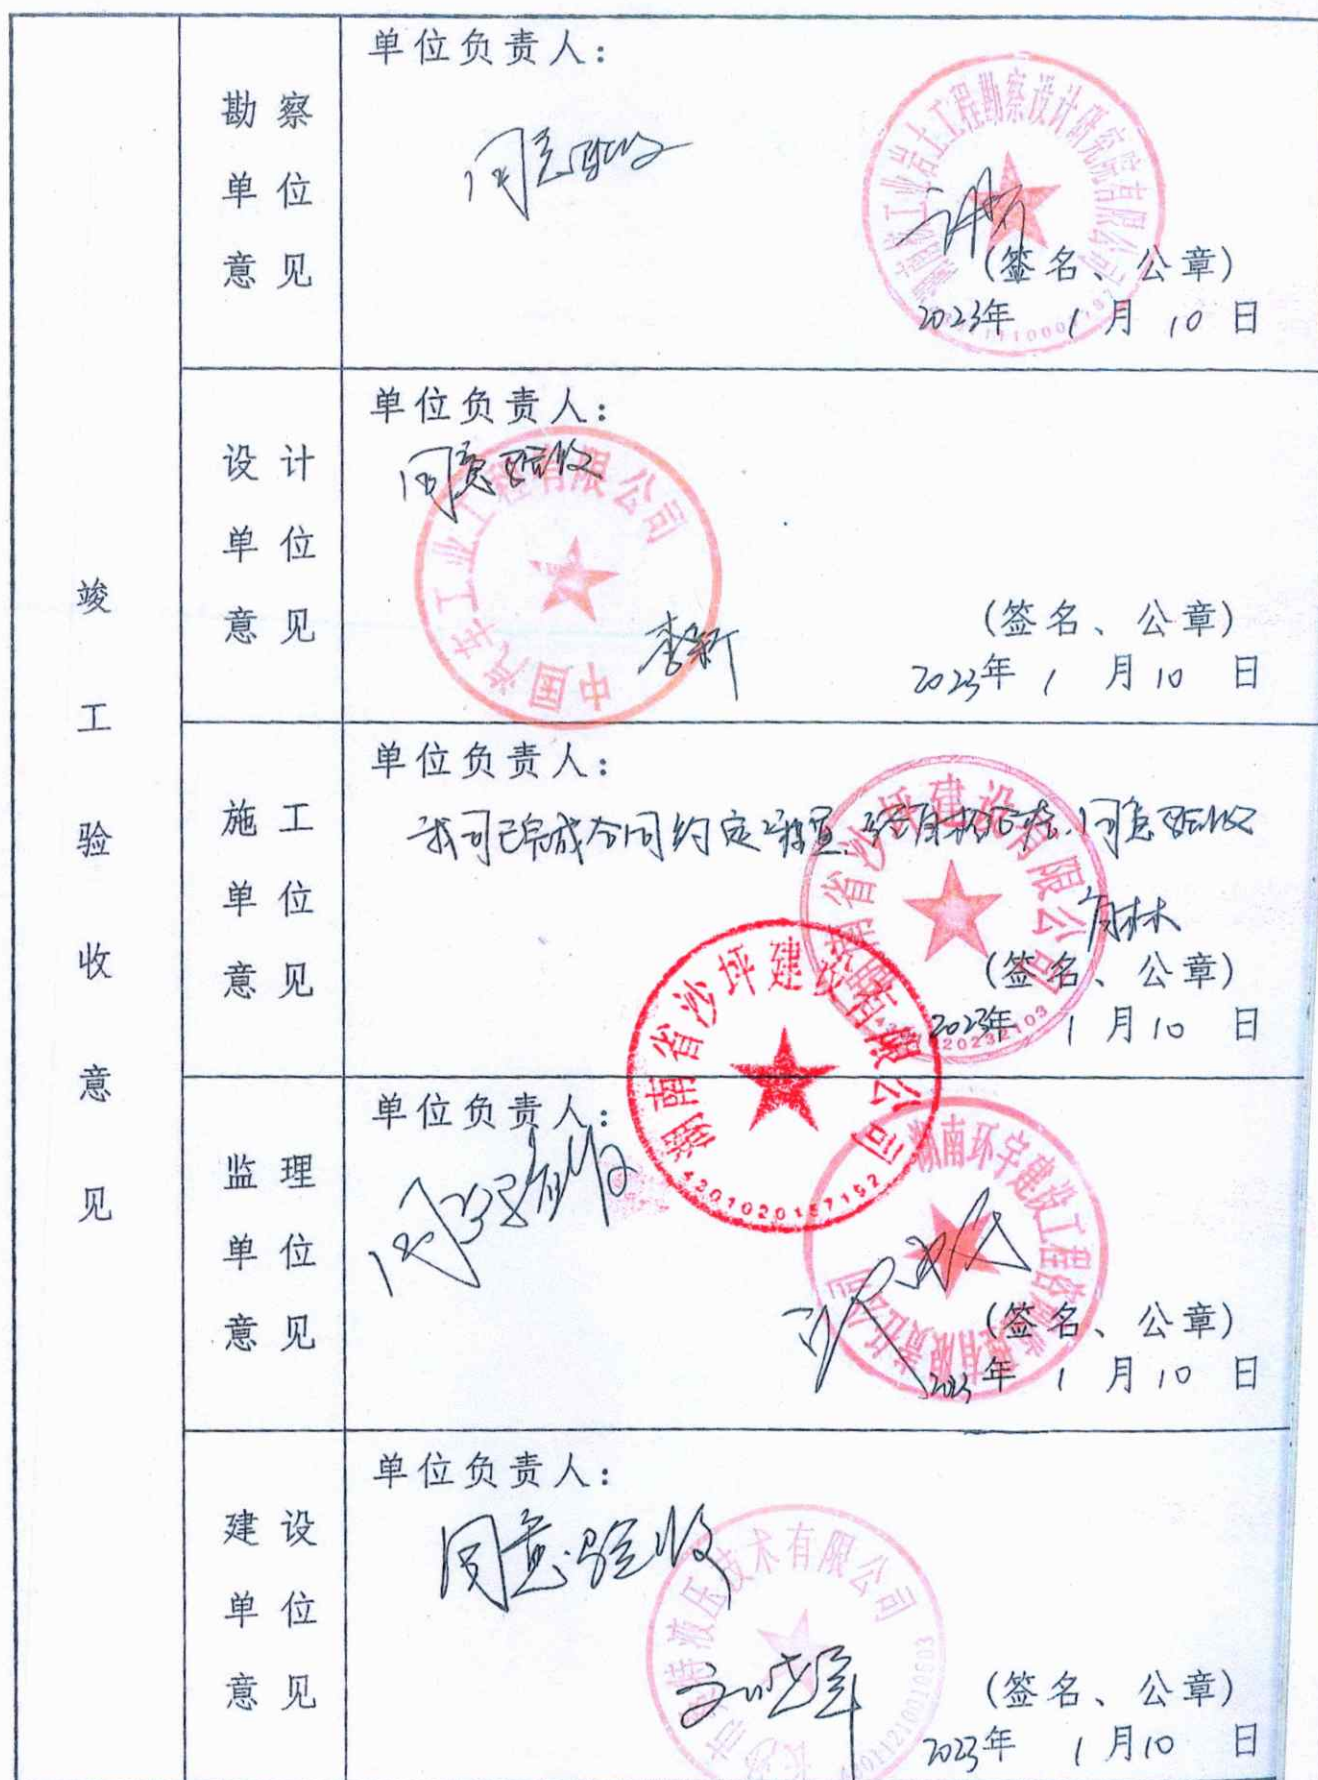 竣工验收意见
勘察单位意见
单位负责人：
同意验收
(签名、公章)
2023年 1月10日
设计单位意见
单位负责人：
同意验收
中国汽车工业工程有限公司
李新
(签名、公章)
2023年 1月10日
施工单位意见
单位负责人：
我司已完成合同约定工程量，经自检合格，同意验收
湖南省沙坪建设有限公司
(签名、公章)
2023年 1月10日
湖南省沙坪建设有限公司
监理单位意见
单位负责人：
同意验收
(签名、公章)
2023年 1月10日
建设单位意见
单位负责人：
同意验收
(签名、公章)
2023年 1月10日